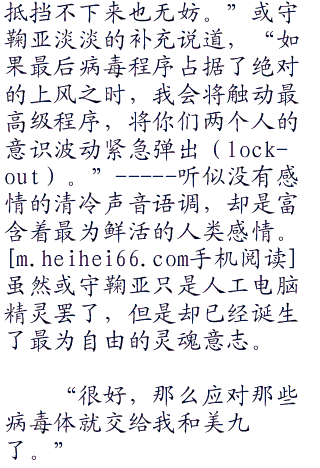 抵挡不下来也无妨。”或守
鞠亚淡淡的补充说道，“如
果最后病毒程序占据了绝对
的上风之时，我会将触动最
高级程序，将你们两个人的
意识波动紧急弹出（lock-
out）。”-----听似没有感
情的清冷声音语调，却是富
含着最为鲜活的人类感情。
[m.heihei66.com手机阅读]
虽然或守鞠亚只是人工电脑
精灵罢了，但是却已经诞生
了最为自由的灵魂意志。
“很好，那么应对那些
病毒体就交给我和美九
了。”